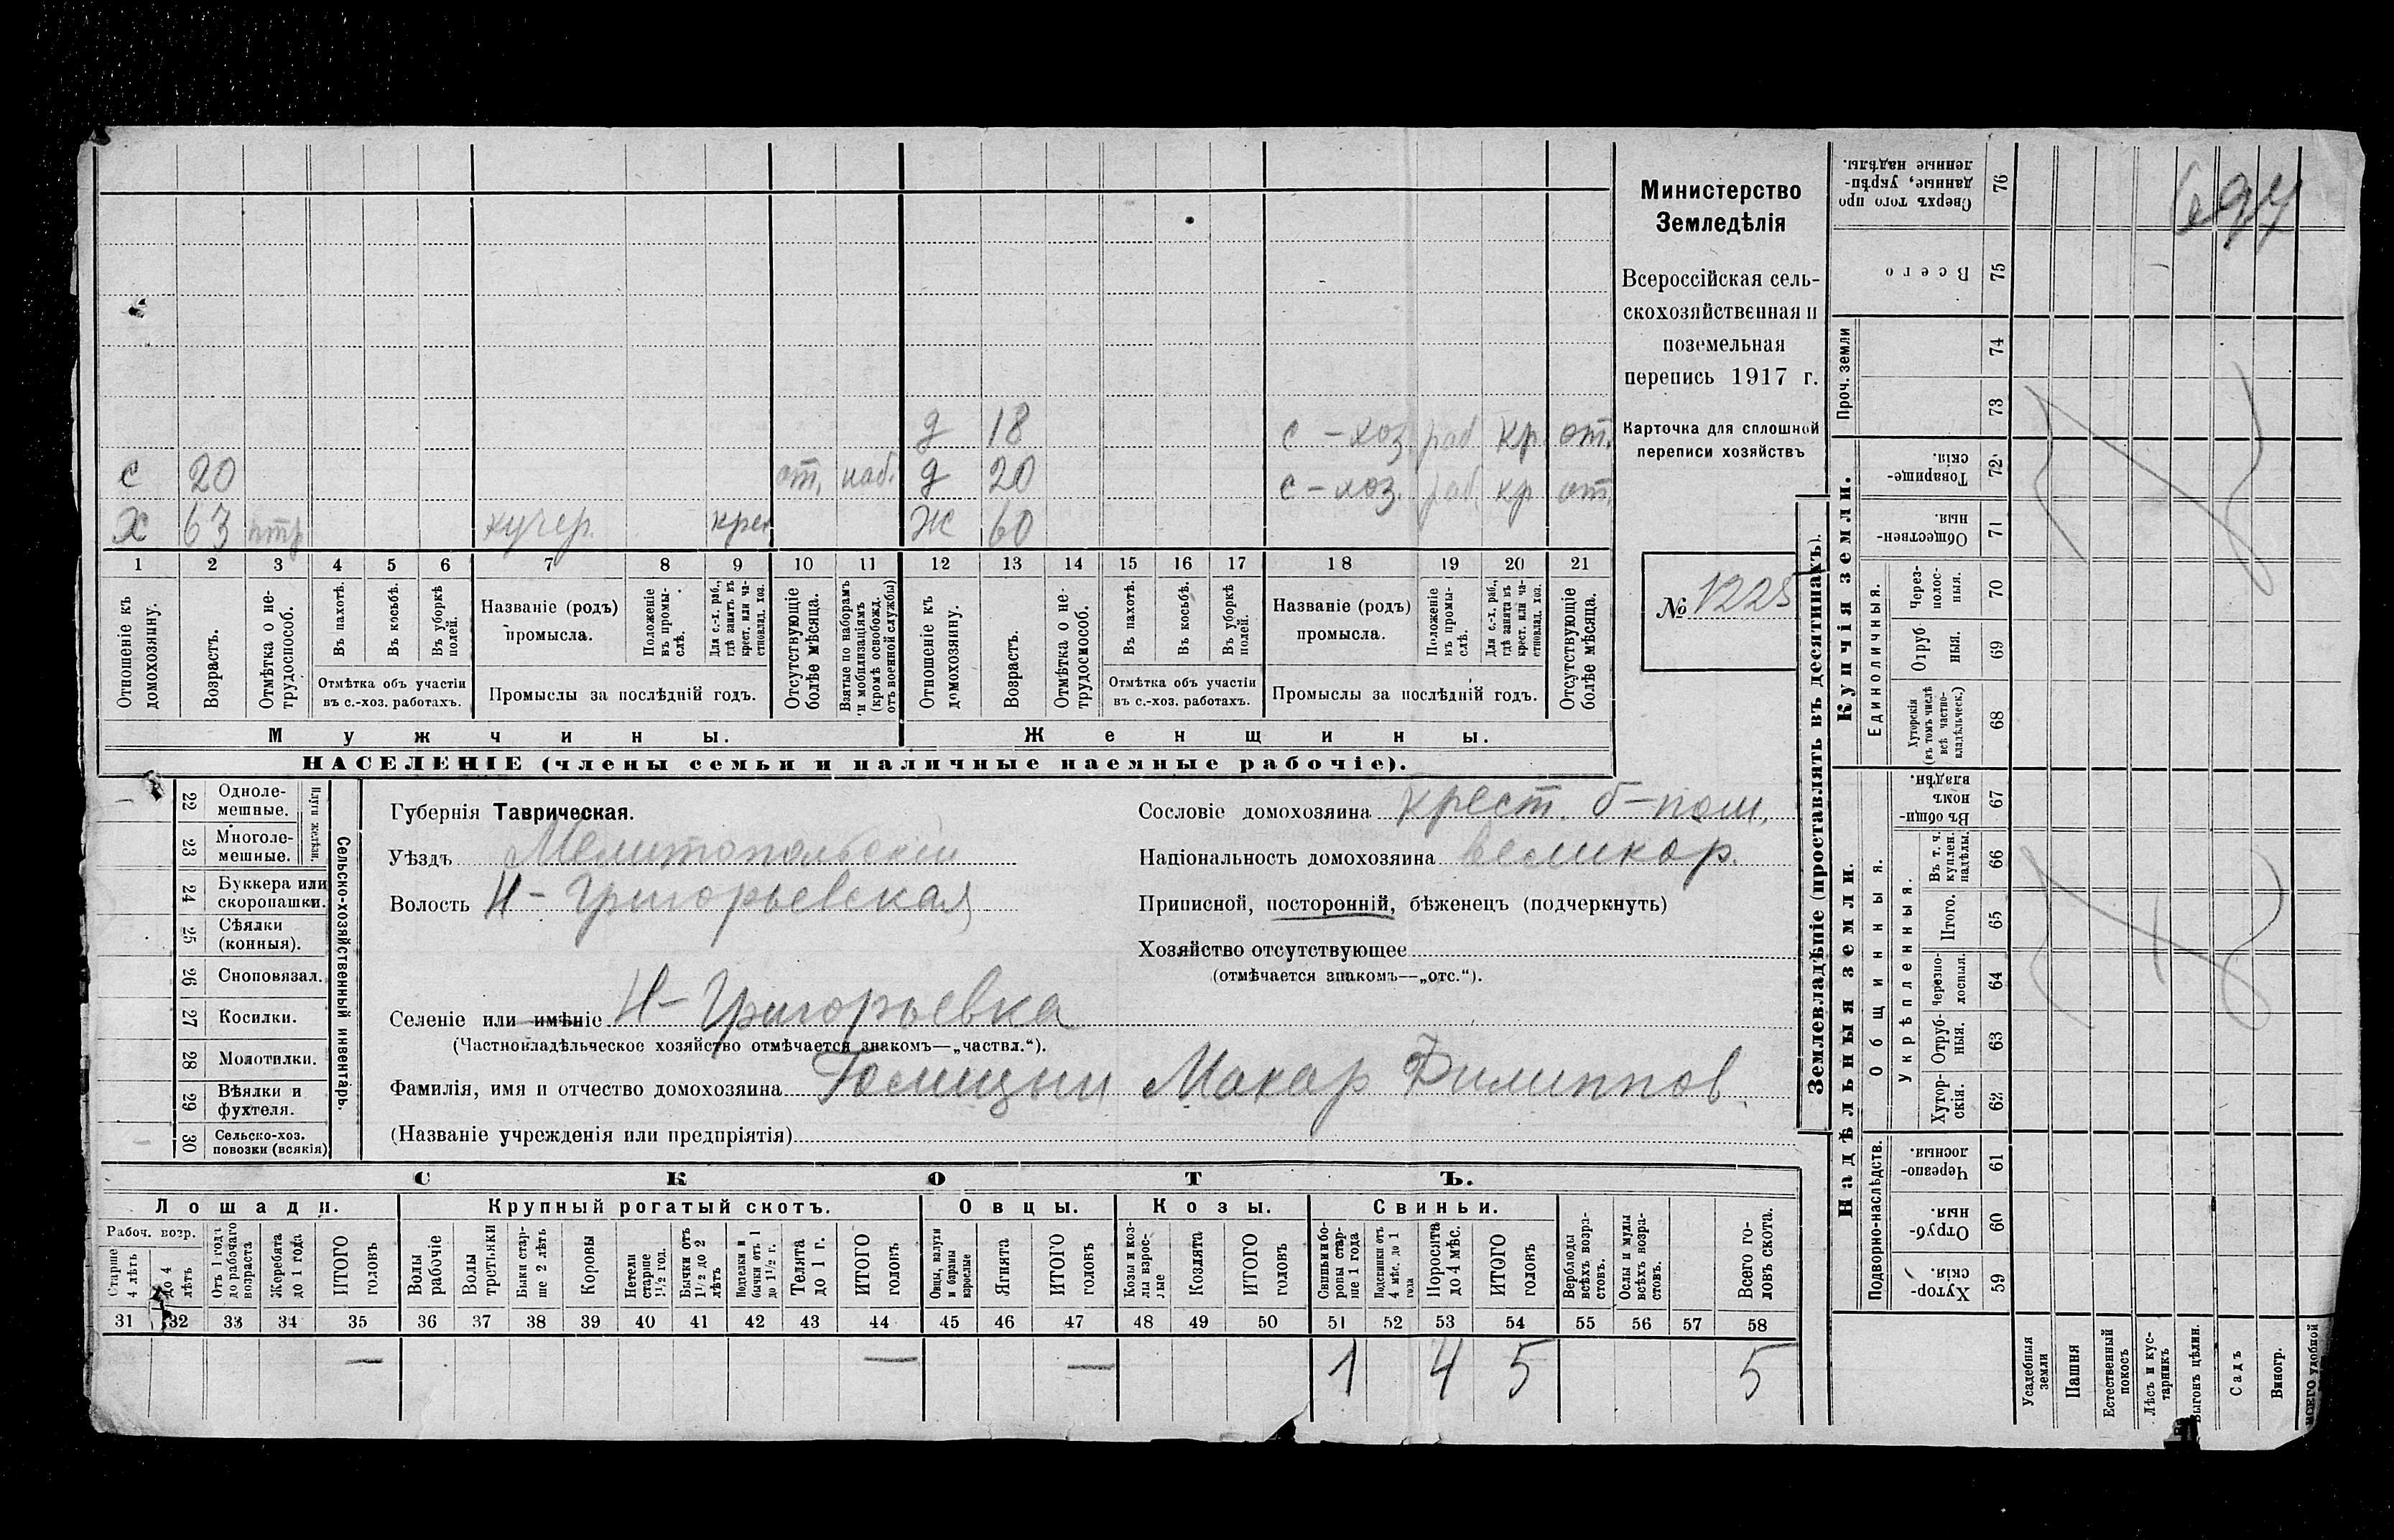 Министерство
Земледѣлія
Всероссійская сель-
скохозяйственная и
поземельная
перепись 1917 г.
Карточка для сплошной
переписи хозяйствъ
№ 1225
697
д 18 с-хоз. раб кр. от.
с 20 от. наб. д 20 с-хоз. раб. кр от.
х 63 нтр кучер. крес Ж 60
1 2 3 4 5 6 7 8 9 10 11 12 13 14 15 16 17 18 19 20 21
Отношеніе къ домохозяину.
Возрастъ.
Отмѣтка о не-трудоспособ.
Въ пахотѣ.
Въ косьбѣ.
Въ уборкѣ полей.
Отмѣтка объ участіи
въ с.-хоз. работахъ.
Названіе (родъ)
промысла.
Положеніе въ промы-слѣ.
Для с.-х. раб., гдѣ занятъ въ крест. или ча-стновлад. хоз.
Промыслы за послѣдній годъ.
Отсутствующіе болѣе мѣсяца.
Взятые по наборамъ и мобилизаціямъ (кромѣ освобожд. отъ военной службы)
Отношеніе къ домохозяину.
Возрастъ.
Отмѣтка о не-трудоспособ.
Въ пахотѣ.
Въ косьбѣ.
Въ уборкѣ полей.
Отмѣтка объ участіи
въ с.-хоз. работахъ.
Названіе (родъ)
промысла.
Положеніе въ промы-слѣ.
Для с.-х. раб., гдѣ занята въ крест. или ча-стновлад. хоз.
Промыслы за послѣдній годъ.
Отсутствующіе болѣе мѣсяца.
Мужчины. Женщины.
НАСЕЛЕНІЕ (члены семьи и наличные наемные рабочіе).
Сельско-хозяйственный инвентарь.
Плуги желѣзн.
22 Одноле-
мешные.
23 Многоле-
мешные.
24 Буккера или
скоропашки.
25 Сѣялки
(конныя).
26 Сноповязал.
27 Косилки.
28 Молотилки.
29 Вѣялки и
фухтеля.
30 Сельско-хоз.
повозки (всякія)
Губернія Таврическая.
Уѣздъ Мелитопольскій
Волость Н-Григорьевская
Селеніе или имѣніе Н-Григорьевка
(Частновладѣльческое хозяйство отмѣчается знакомъ—„частвл.“).
Фамилія, имя и отчество домохозяина Голицын Макар Филиппов.
(Названіе учрежденія или предпріятія)
Сословіе домохозяина крест. б-пош.
Національность домохозяина великор.
Приписной, посторонній, бѣженецъ (подчеркнуть)
Хозяйство отсутствующее
(отмѣчается знакомъ—„отс.“).
СКОТЪ.
Лошади. Крупный рогатый скотъ. Овцы. Козы. Свиньи.
Рабоч. возр.
Старше 4 лѣтъ
до 4 лѣтъ
Отъ 1 года до рабочаго возраста
Жеребята до 1 года
ИТОГО головъ
Волы рабочіе
Волы третьяки
Быки стар-ше 2 лѣтъ
Коровы
Нетели старше 1½ год.
Бычки отъ 1½ до 2 лѣтъ
бычки отъ 1 до 1½ г.
Телята до 1 г.
ИТОГО головъ
Овцы, валухи и бараны взрослые
Ягнята
ИТОГО головъ
Козы и коз-лы взрос-лые
Козлята
ИТОГО головъ
Свиньи и бо-ровы стар-ше 1 года
Подсвинки отъ 4 мѣс. до 1 года
Поросята до 4 мѣс.
ИТОГО головъ
Верблюды всѣхъ возра-стовъ.
Ослы и мулы всѣхъ возра-стовъ.
Всего го-ловъ скота.
31 32 33 34 35 36 37 38 39 40 41 42 43 44 45 46 47 48 49 50 51 52 53 54 55 56 57 58
— — — 1 4 5 5
Землевладѣніе (проставлять въ десятинахъ).
Купчія земли.
Надѣльныя земли.
Проч. земли
Единоличныя.
Общинныя.
Укрѣпленныя.
Подворно-наслѣдств.
Сверхъ того про данные, укрѣп-ленные надѣлы. 76
Всего 75
74
73
Товарище-скія. 72
Обществен-ныя. 71
Через-полос-ныя. 70
Отруб ныя. 69
Хуторскія (въ томъ числѣ всѣ частно-владѣльческ.) 68
Въ общи-номъ владѣн. 67
Въ т. ч. куплен. надѣлы. 66
Итого. 65
Черезпо-лосныя. 64
Отруб-ныя. 63
Хутор-скія. 62
Черезпо-лосныя. 61
Отруб-ныя. 60
Хутор-скія. 59
Усадебныя земли
Пашня
Естественный покосъ
Лѣсъ и кус-тарникъ
Выгонъ цѣлин.
Садъ
Виногр.